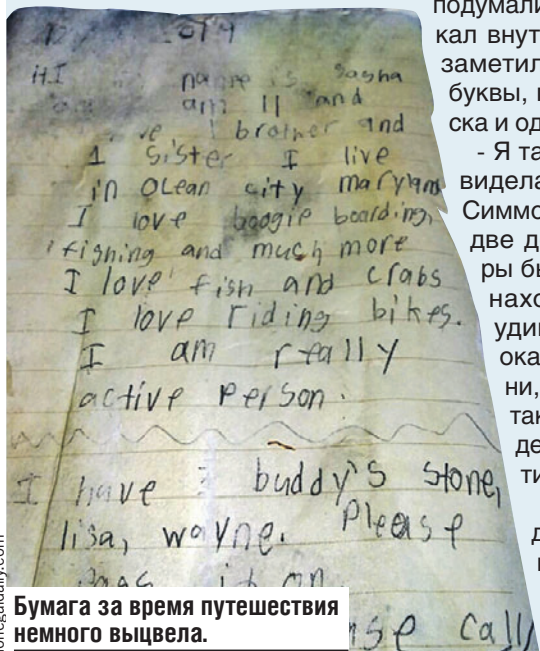 HI name is Sasha
am 11 and
1 brother and
1 sister I live
in Ocean city maryland
I love boogie boarding,
fishing and much more
I love fish and crabs
I love riding bikes.
I am really
active person.
I have buddy's stone,
lisa, wayne. Please
Pass it on
call
Бумага за время путешествия
немного выцвела.
подумали
кал внут
заметил
буквы,
ска и од
- Я та
видела
Симмо
две д
ры бы
нахо
уди
ока
ни,
так
де
ти